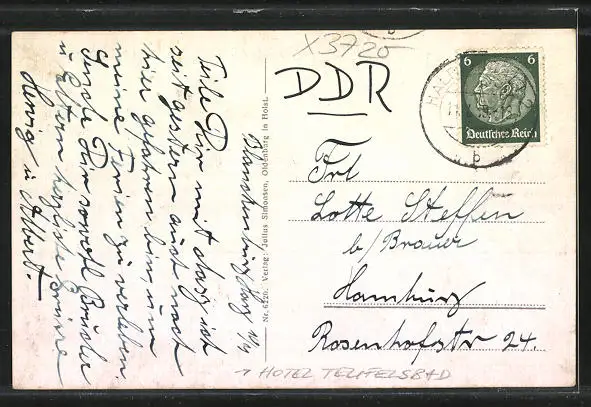 X3725
DDR
6 6
Deutsches Reich
b
Frl
Lotte Steffen
b/Brauer
Hamburg
Rosenhofstr 24.
Nr. 6220. Verlag: Julius Simonsen, Oldenburg in Holst.
Blankenburg Harz
Teile Dir mit dass ich
seit gestern auch nach
hier gefahren bin um
meine Ferien zu verleben.
Sende Dir sowohl Bruder
u Eltern herzliche Grüsse
u Albert.
HOTEL TEUFELSBAD